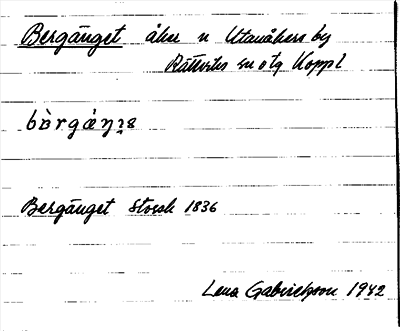 Bergänget åker n Utanåkers by
Rättviks sn o tg Koppl
Bergänget Storsk 1836
Lena Gabrielsson 1942